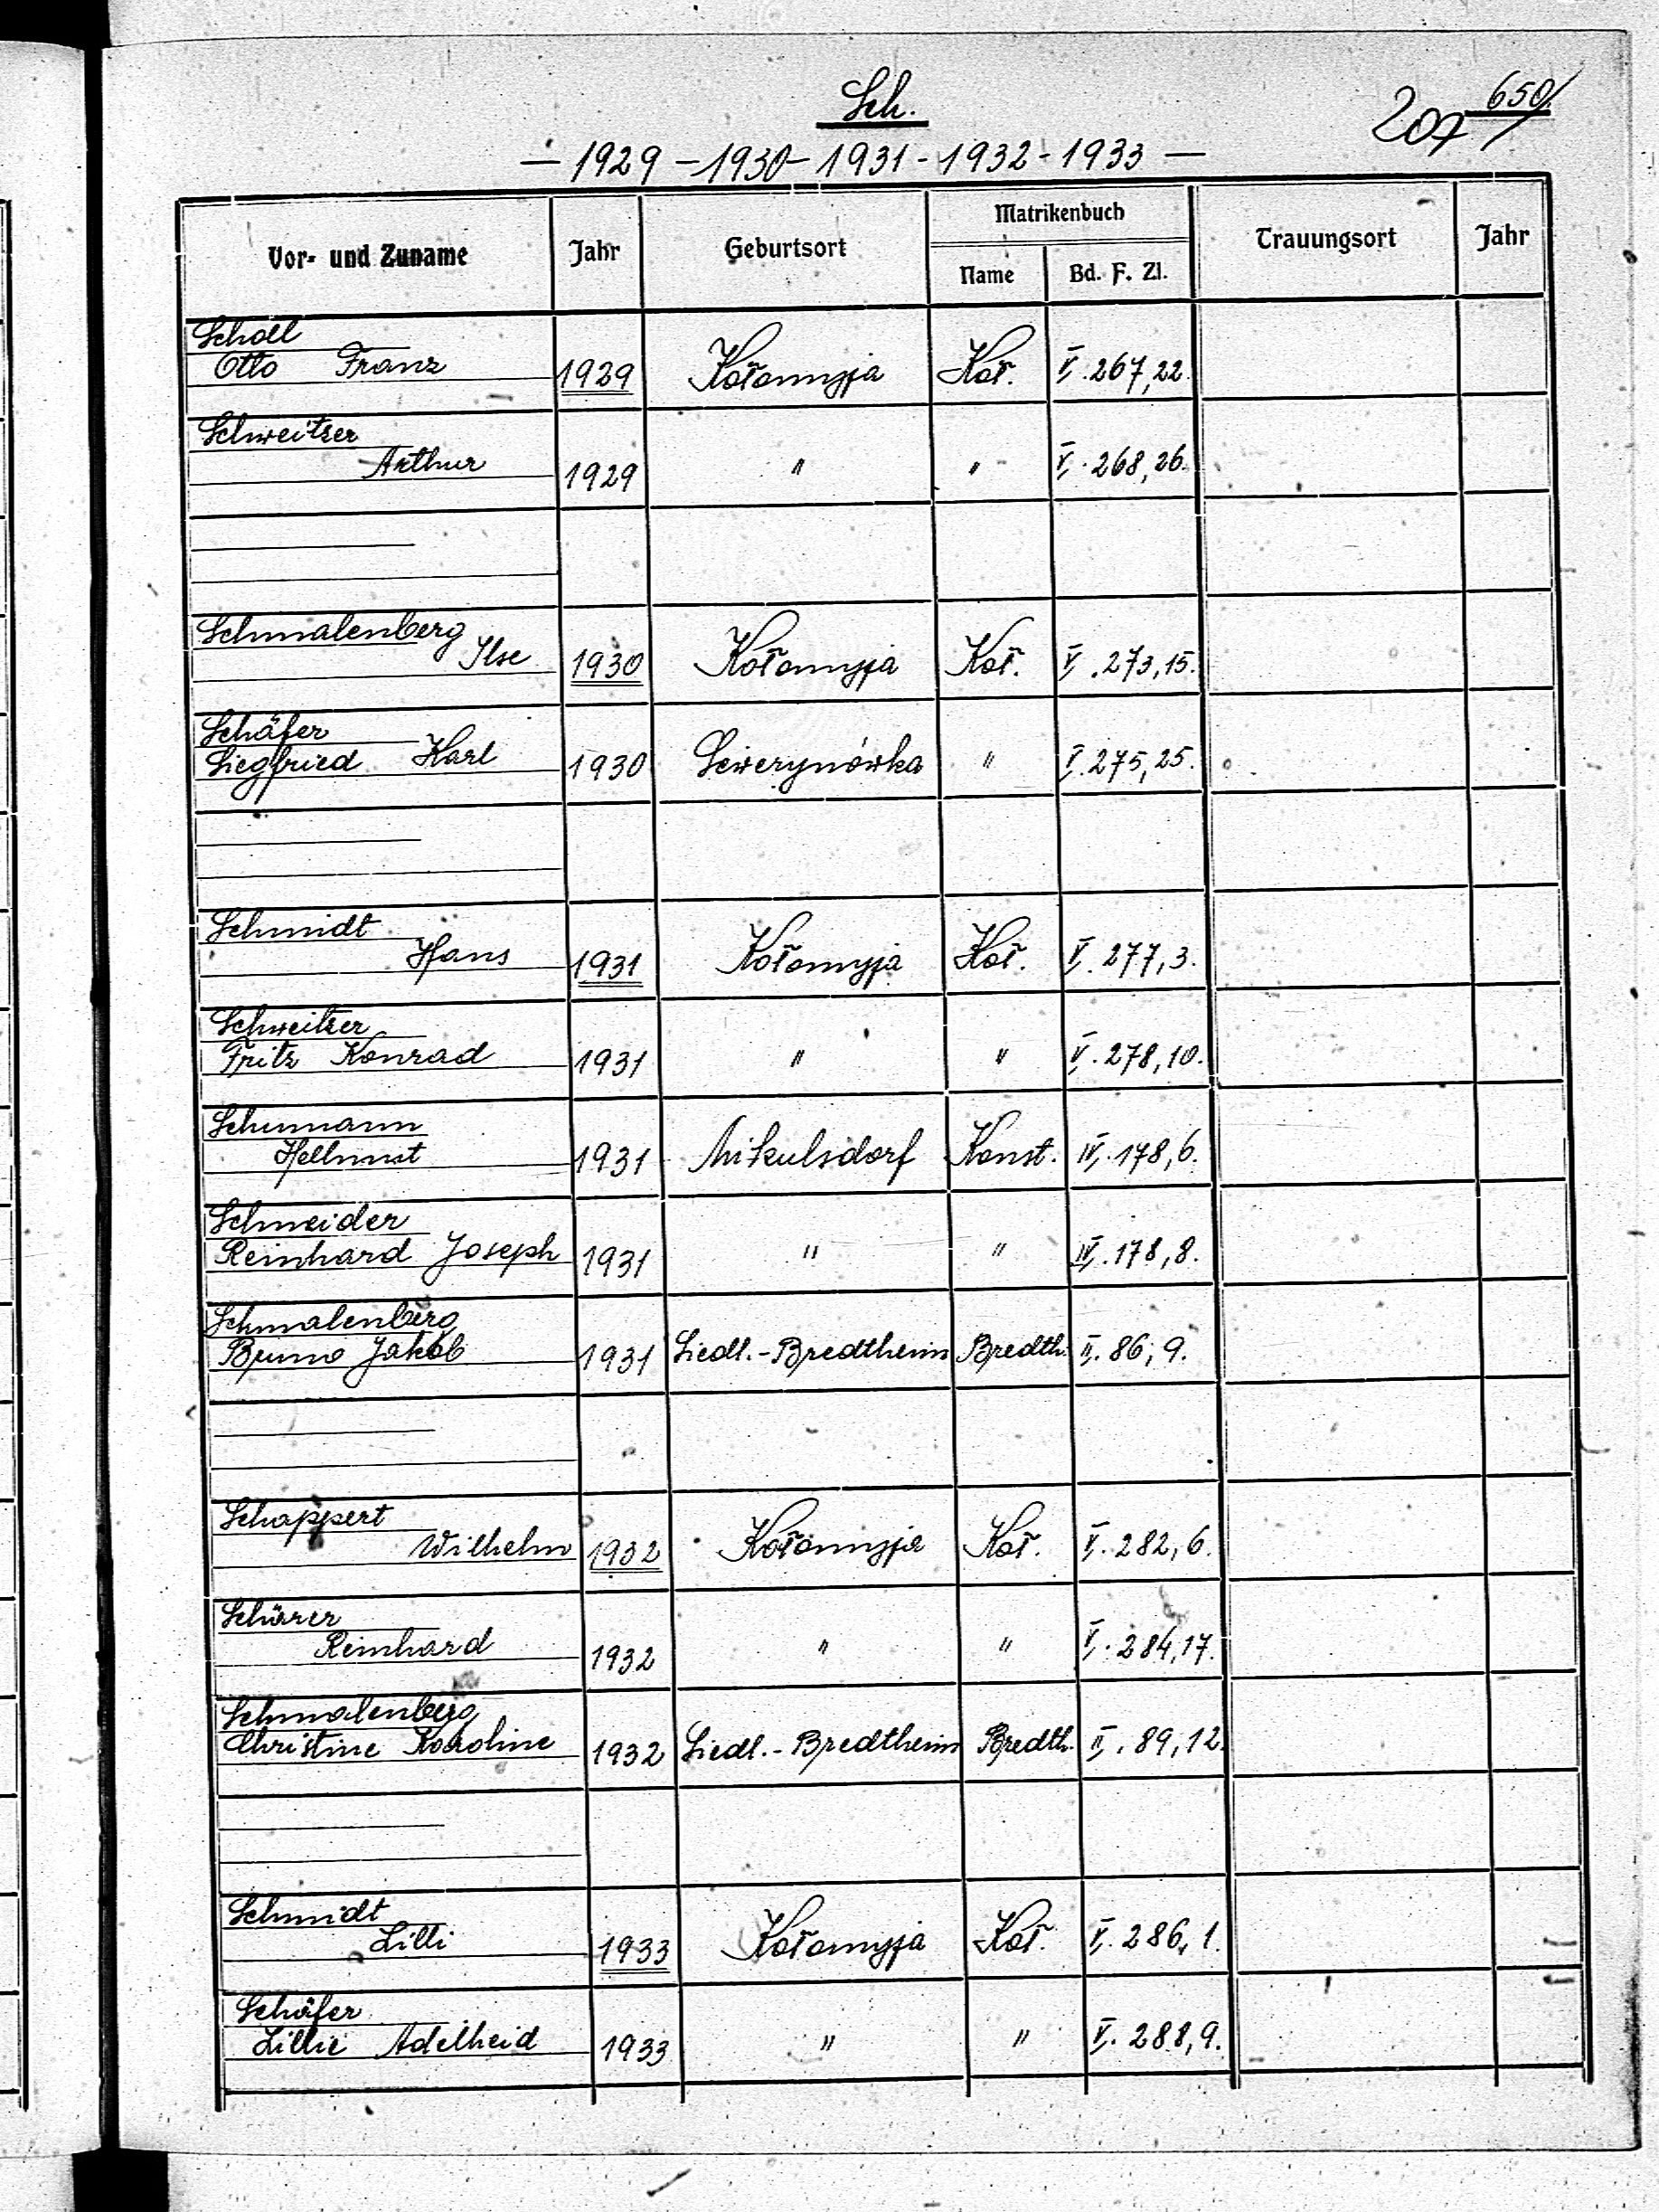 Sch.
650/
207
— 1929 – 1930 – 1931 - 1932 - 1933 —
Vor- und Zuname Jahr Geburtsort Matrikenbuch Trauungsort Jahr
Name Bd. F. Zl.
Scholl
Otto Franz 1929 Kołomyja Koł. V. 267,22.
Schweitzer
Arthur 1929 " " V. 268,26.
Schmalenberg
Ilse 1930 Kołomyja Koł. V. 273,15.
Schäfer
Siegfried Karl 1930 Sewerynówka " V. 275,25.
Schmidt
Hans 1931 Kołomyja Koł. V. 277,3.
Schweitzer
Fritz Konrad 1931 " " V. 278,10.
Schumann
Hellmut 1931 Mikulsdorf Konst. IV. 178,6.
Schneider
Reinhard Joseph 1931 " " IV. 178,8.
Schmalenberg
Bruno Jakob 1931 Siedl.-Bredtheim Bredth. II. 86,9.
Schappert
Wilhelm 1932 Kołomyja Koł. V. 282,6.
Schürer
Reinhard 1932 " " V. 284,17.
Schmalenberg
Christine Karoline 1932 Siedl.-Bredtheim Bredth. II. 89,12.
Schmidt
Lilli 1933 Kołomyja Koł. V. 286,1.
Schäfer
Lillie Adelheid 1933 " " V. 288,9.